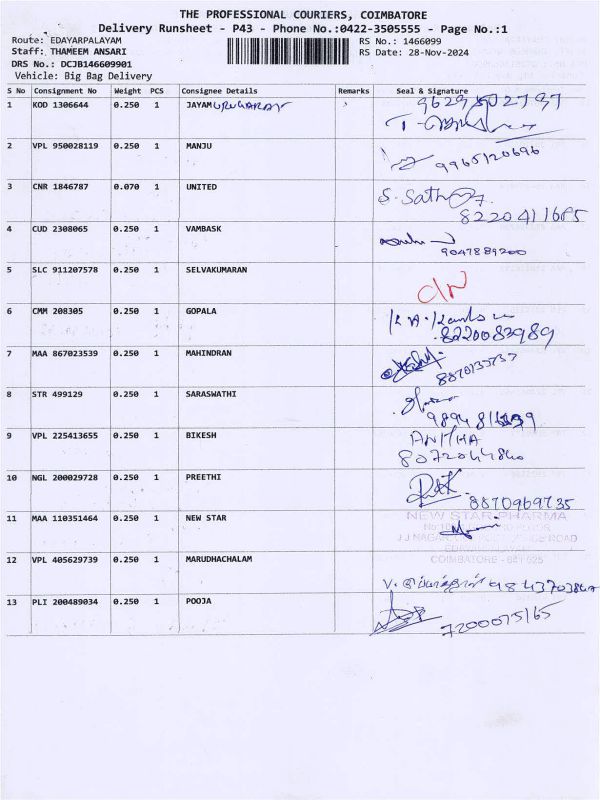 THE PROFESSIONAL COURIERS, COIMBATORE
Delivery Runsheet - P43 - Phone No.:0422-3505555 - Page No.:1
Route: EDAYARPALAYAM RS No.: 1466099
Staff: THAMEEM ANSARI RS Date: 28-Nov-2024
DRS No.: DCJB146609901
Vehicle: Big Bag Delivery
S No Consignment No Weight PCS Consignee Details Remarks Seal & Signature
1 KOD 1306644 0.250 1 JAYAM
2 VPL 950028119 0.250 1 MANJU 9965120696
3 CNR 1846787 0.070 1 UNITED S.
8220411685
4 CUD 2308065 0.250 1 VAMBASK
9047889200
5 SLC 911207578 0.250 1 SELVAKUMARAN
6 CMM 208305 0.250 1 GOPALA
8220083989
7 MAA 867023539 0.250 1 MAHINDRAN
8 STR 499129 0.250 1 SARASWATHI
9 VPL 225413655 0.250 1 BIKESH ANITHA
10 NGL 200029728 0.250 1 PREETHI
NEW STAR PHARMA
11 MAA 110351464 0.250 1 NEW STAR
J.J NAGAR ROAD
COIMBATORE - 641 025
12 VPL 405629739 0.250 1 MARUDHACHALAM
13 PLI 200489034 0.250 1 POOJA
7200075165